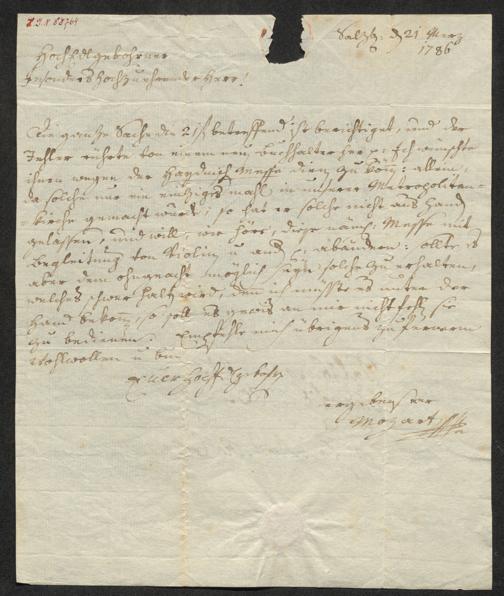 Salzb: d 21 Merz
1786
HochEdlgebohrner
besonders Hochzuehrender Herr!
Die ganze Sache die 2 f betreffend ist berichtiget, und der
Fehler rührte von einem neuen Buchhalter her: Ich wünschte
ihnen wegen der Haydnisch Messe dienen zu könn: allein
da solche nur ein einziges mahl in unserer Metropolitan-
kirche gemacht wurde, so hat er solche nicht aus Handen
gelassen, und will, wie höre, diese näml: Messe mit
Begleitung von Violin u. and: abändern: sollte es
aber dem ohngeacht möglich seyn solche zu erhalten,
welches schwer halten wird, denn ich müsste es unter der
Hand bekom, so soll es gewis an mir nicht fehl sie
zu bedienen. Empfehle mich übrigens zu fernerem
Wohlwollen u. bin
Euer
ergebenster
Mozart